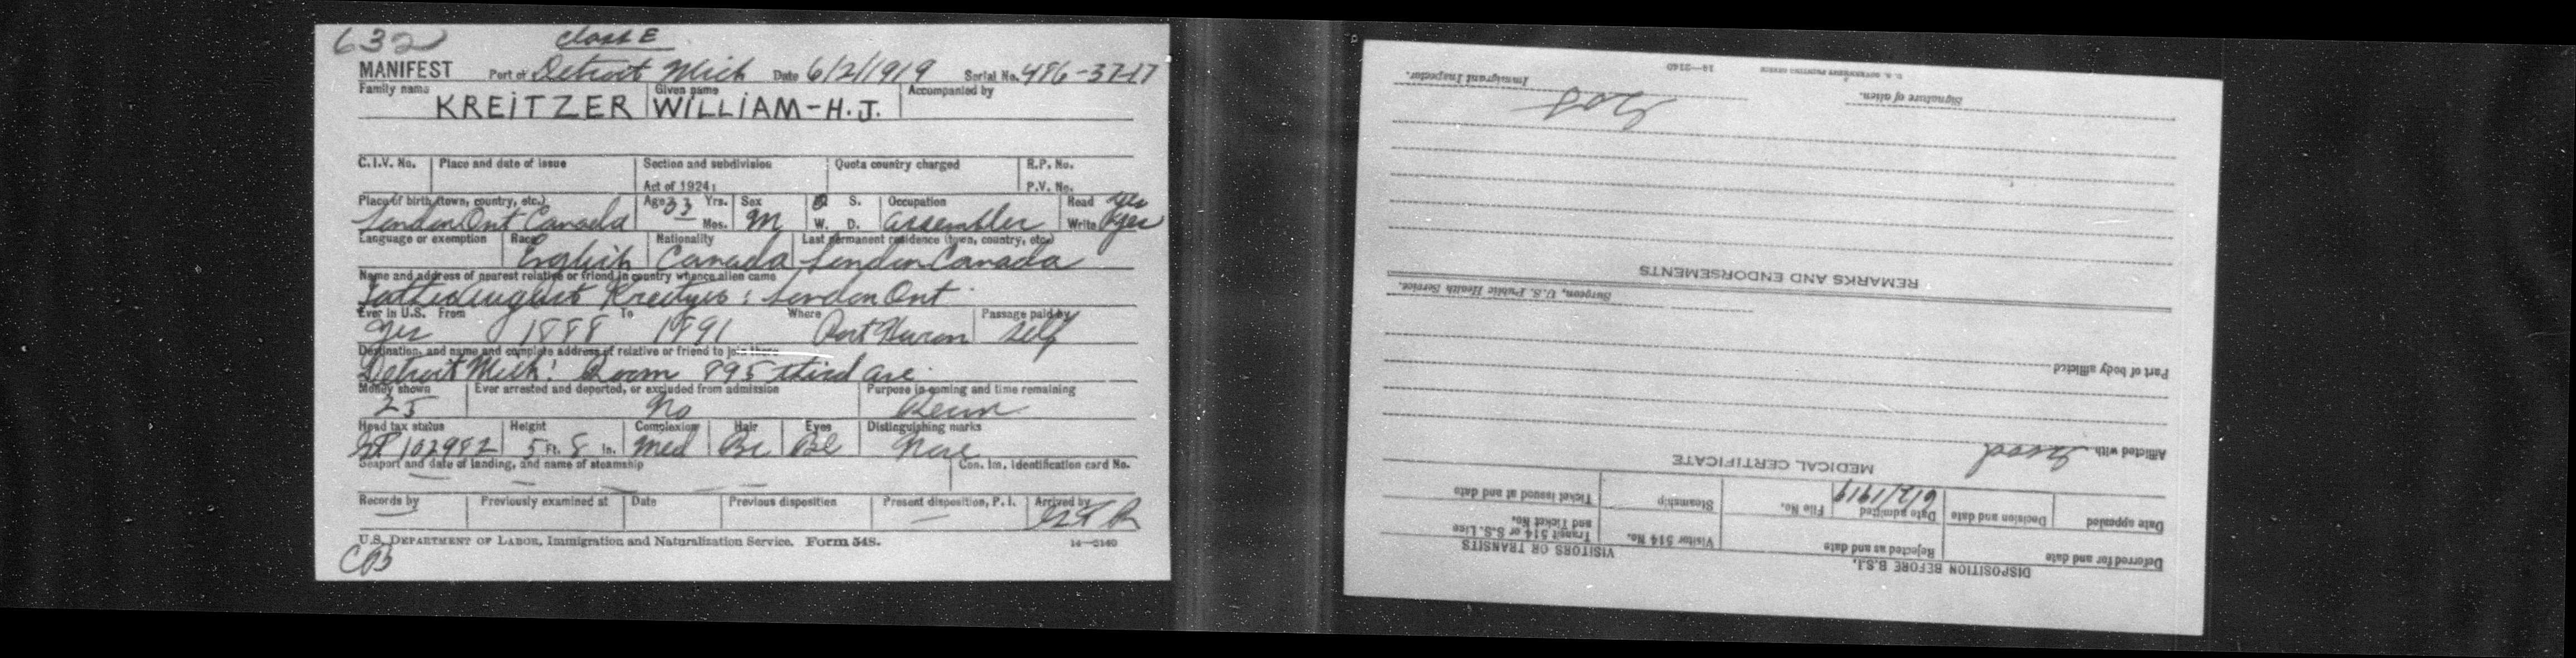 632 Class E
MANIFEST Port of Detroit Mich Date 6/2/1919 Serial No. 486-37-17
Family name Given name Accompanied by
KREITZER WILLIAM-H.J.
C.I.V. No. Place and date of issue Section and subdivision Quota country charged R.P. No.
Act of 1924: P.V. No.
Place of birth (town, country, etc.) Age 33 Yrs. Sex S. Occupation Read Yes
London Ont Canada Mos. M W. D. assembler Write Yes
Language or exemption Race Nationality Last permanent residence (town, country, etc.)
English Canada London Canada
Name and address of nearest relative or friend in country whence alien came
Father August Kreitzer : London Ont
Ever in U.S. From To Where Passage paid by
Yes 1888 1891 Port Huron self
Destination, and name and complete address of relative or friend to join there
Detroit Mich: Room 895 third ave.
Money shown Ever arrested and deported, or excluded from admission Purpose in coming and time remaining
25 No
Head tax status Height Complexion Hair Eyes Distinguishing marks
102982 5 Ft. 8 In. Med Br Bl None
Seaport and date of landing, and name of steamship Con. Im. Identification card No.
Records by Previously examined at Date Previous disposition Present disposition, P. I. Arrived by
U.S. DEPARTMENT OF LABOR, Immigration and Naturalization Service. Form 548. 14—2140
DISPOSITION BEFORE B.S.I.
Deferred for and date Rejected as and date
Date appealed Decision and date Date admitted File No.
6/2/1919
VISITORS OR TRANSITS
Visitor 514 No. Transit 514 or S.S. Line and Ticket No.
Steamship Ticket issued at and date
MEDICAL CERTIFICATE
Afflicted with
Part of body afflicted
Surgeon, U.S. Public Health Service.
REMARKS AND ENDORSEMENTS
Signature of alien. Immigrant Inspector.
U. S. GOVERNMENT PRINTING OFFICE 14—2140